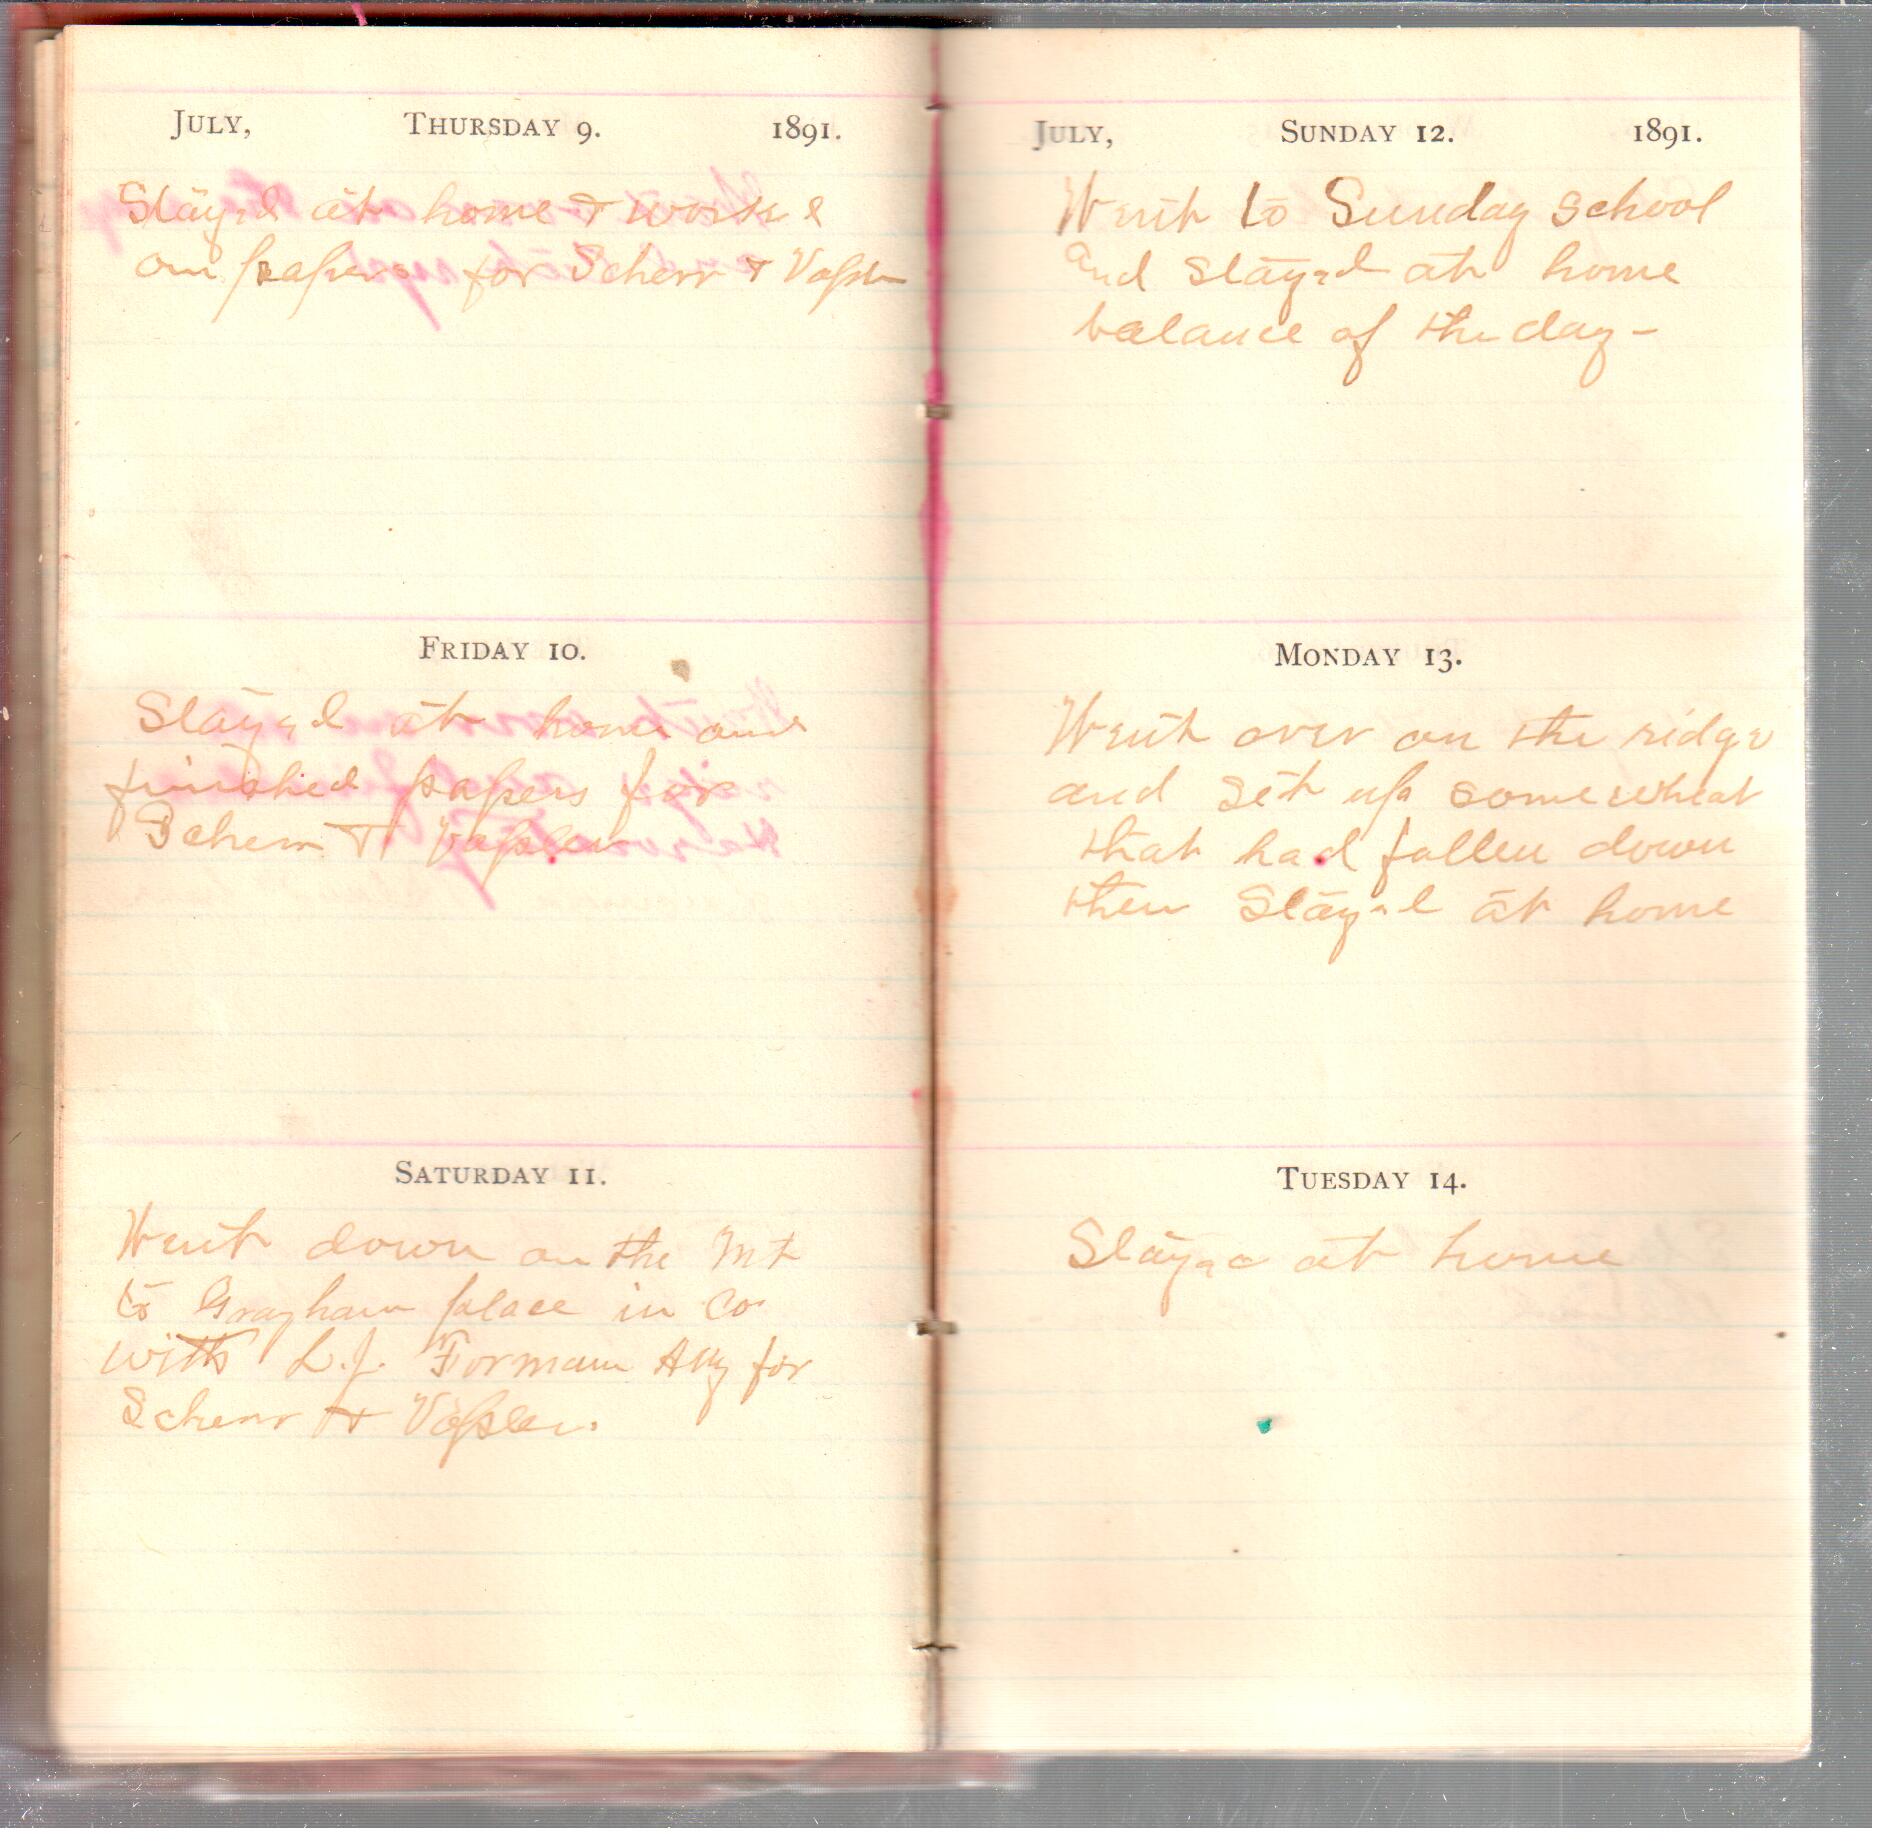 JULY, THURSDAY 9. 1891.
Stayed at home & worked
on papers for Scherr & Vossler
FRIDAY 10.
Stayed at home and
finished papers for
Scherr & Vossler
SATURDAY 11.
Went down on the Mt
to Grayham place in Co
with L.J. Forman Atty for
Scherr & Vossler.
JULY, SUNDAY 12. 1891.
Went to Sunday School
and stayed at home
balance of the day -
MONDAY 13.
Went over on the ridge
and set up some wheat
that had fallen down
then Stayed at home
TUESDAY 14.
Stayed at home